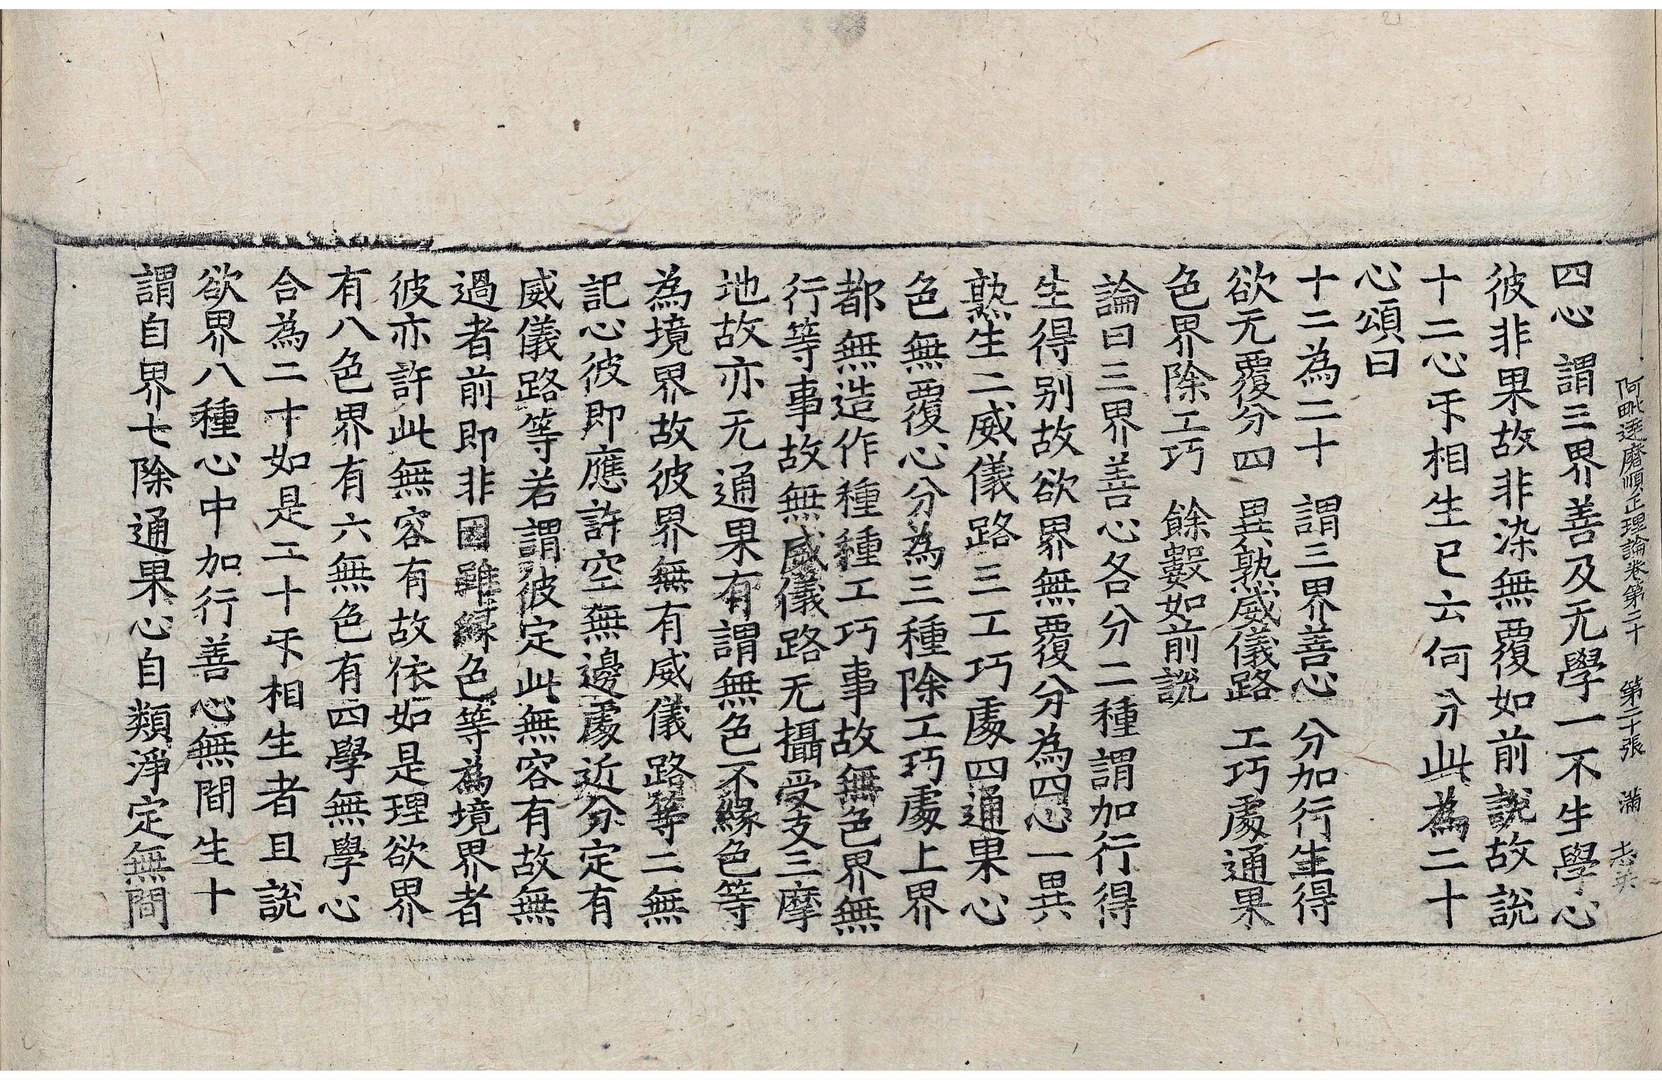 阿毗達磨順正理論卷第二十　第二十張　滿　志英
四心　謂三界善及无學一不生學心
彼非果故非染無覆如前說故說
十二心𠄔相生已云何分此為二十
心頌曰
十二為二十　謂三界善心　分加行生得
欲无覆分四　異熟威儀路　工巧處通果
色界除工巧　餘數如前說
論曰三界善心各分二種謂加行得
生得別故欲界無覆分為四心一異
熟生二威儀路三工巧處四通果心
色無覆心分為三種除工巧處上界
都無造作種種工巧事故無色界無
行等事故無威儀路无攝受支三摩
地故亦无通果有謂無色不緣色等
為境界故彼界無有威儀路等二無
記心彼即應許空無邊處近分定有
威儀路等若謂彼定此無容有故無
過者前即非因雖緣色等為境界者
彼亦許此無容有故依如是理欲界
有八色界有六無色有四學無學心
合為二十如是二十𠄔相生者且說
欲界八種心中加行善心無間生十
謂自界七除通果心自類淨定無間